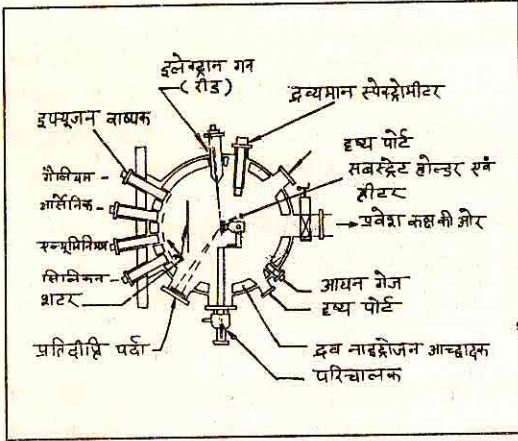 इलेक्ट्रान गन
(रीड)
द्रव्यमान स्पेक्ट्रोमीटर
इफ्यूजन वाष्पक
दृष्य पोर्ट
सबस्ट्रेट होल्डर एवं
हीटर
गैलियम
आर्सेनिक
एल्यूमिनियम
सिलिकन
शटर
प्रवेश कक्ष की ओर
आयन गेज
दृष्य पोर्ट
प्रतिदीप्ति पर्दा
द्रव नाइट्रोजन आच्छादक
परिचालक